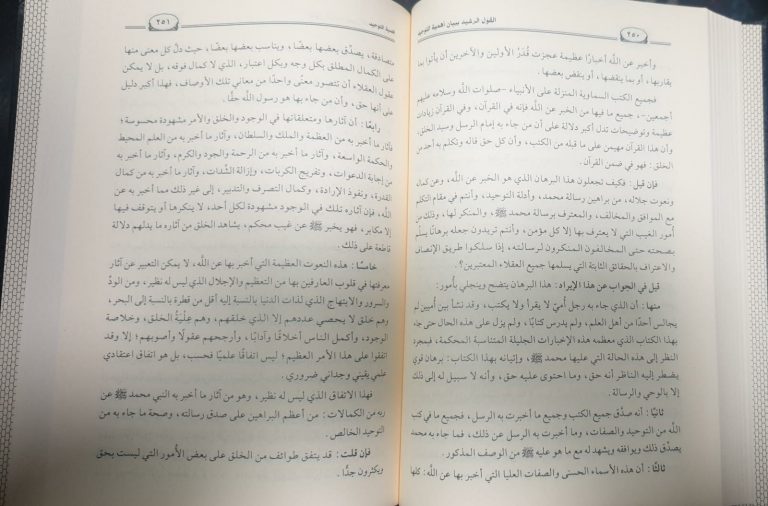 ٢٥٠
القول الرشيد ببيان أهمية التوحيد
وأخبر عن الله أخبارًا عظيمة عجزت قُدَرُ الأولين والآخرين أن يأتوا بما
يقاربها، أو بما يناقضها، أو ينقض بعضها.
فجميع الكتب السماوية المنزلة على الأنبياء -صلوات الله وسلامه عليهم
أجمعين-، جميع ما فيها من الخبر عن الله فإنه في القرآن، وفي القرآن زيادات
عظيمة وتوضيحات تدل أكبر دلالة على أن من جاء به إمام الرسل وسيد الخلق،
وأن هذا القرآن مهيمن على ما قبله من الكتب، وأن كل حق قاله وتكلم به أحد من
الخلق: فهو في ضمن القرآن.
فإن قيل: فكيف تجعلون هذا البرهان الذي هو الخبر عن الله، وعن كماله
ونعوت جلاله، من براهين رسالة محمد، وأدلة التوحيد، وأنتم في مقام التكلم
مع الموافق والمخالف، والمعترف برسالة محمد ﷺ، والمنكر لها، وذلك من
أمور الغيب التي لا يعترف بها إلا كل مؤمن، وأنتم تريدون جعله برهانًا يسلّم
بصحته حتى المخالفون المنكرون لرسالته، إذا سلكوا طريق الإنصاف
والاعتراف بالحقائق الثابتة التي يسلمها جميع العقلاء المعتبرين؟.
قيل في الجواب عن هذا الإيراد: هذا البرهان يتضح وينجلي بأمور:
منها: أن الذي جاء به رجل أُميّ لا يقرأ ولا يكتب، وقد نشأ بين أُميين لم
يجالس أحدًا من أهل العلم، ولم يدرس كتابًا، ولم يزل على هذه الحال حتى جاء
بهذا الكتاب الذي معظمه هذه الإخبارات الجليلة المتناسبة المحكمة، فمجرد
النظر إلى هذه الحالة التي عليها محمد ﷺ، وإتيانه بهذا الكتاب: برهان قوي
يضطر إليه الناظر أنه حق، وما احتوى عليه حق، وأنه لا سبيل له إلى ذلك
إلا بالوحي والرسالة.
ثانيًا: أنه صدَّق جميع الكتب وجميع ما أخبرت به الرسل، فجميع ما في كتب
الله من التوحيد والصفات، وما أخبرت به الرسل عن ذلك، فما جاء به محمد
يصدِّق ذلك ويوافقه ويشهد له مع ما هو عليه ﷺ من الوصف المذكور.
ثالثًا: أن هذه الأسماء الحسنى والصفات العليا التي أخبر بها عن الله: كلها
قضية التوحيد
٢٥١
متصادقة، يصدِّق بعضها بعضًا، ويناسب بعضها بعضًا، حيث دلَّ كل معنى منها
على الكمال المطلق بكل وجه وبكل اعتبار، الذي لا كمال فوقه، بل لا يمكن
عقول العقلاء أن تتصور معنًى واحدًا من معاني تلك الأوصاف، فهذا أكبر دليل
على أنها حق، وأن من جاء بها هو رسول الله حقًّا.
رابعًا: أن آثارها ومتعلقاتها في الوجود والخلق والأمر مشهودة محسوسة؛
فآثار ما أخبر به من العظمة والملك والسلطان، وآثار ما أخبر به من العلم المحيط
والحكمة الواسعة، وآثار ما أخبر به من الرحمة والجود والكرم، وآثار ما أخبر به
من إجابة الدعوات، وتفريج الكربات، وإزالة الشدات، وآثار ما أخبر به من كمال
القدرة، ونفوذ الإرادة، وكمال التصرف والتدبير، إلى غير ذلك مما أخبر به عن
الله، فإن آثاره تلك في الوجود مشهودة لكل أحد، لا ينكرها أو يتوقف فيها
إلا مكابر، فهو يخبر ﷺ عن غيب محكم، يشاهد الخلق من آثاره ما يدلهم دلالة
قاطعة على ذلك.
خامسًا: هذه النعوت العظيمة التي أخبر بها عن الله، لا يمكن التعبير عن آثار
معرفتها في قلوب العارفين بها من التعظيم والإجلال الذي ليس له نظير، ومن الودِّ
والسرور والابتهاج الذي لذات الدنيا بالنسبة إليه أقل من قطرة بالنسبة إلى البحر،
وهم خلق لا يحصي عددهم إلا الذي خلقهم، وهم عِلْيَة الخلق، وخلاصة
الوجود، وأكمل الناس أخلاقًا وآدابًا، وأرجحهم عقولًا وأصوبهم؛ إلا وقد
اتفقوا على هذا الأمر العظيم؛ ليس اتفاقًا علميًّا فحسب، بل هو اتفاق اعتقادي
علمي يقيني وجداني ضروري.
فهذا الاتفاق الذي ليس له نظير، وهو من آثار ما أخبر به النبي محمد ﷺ عن
ربه من الكمالات: من أعظم البراهين على صدق رسالته، وصحة ما جاء به من
التوحيد الخالص.
فإن قلت: قد يتفق طوائف من الخلق على بعض الأمور التي ليست بحق
ويكثرون جدًّا.